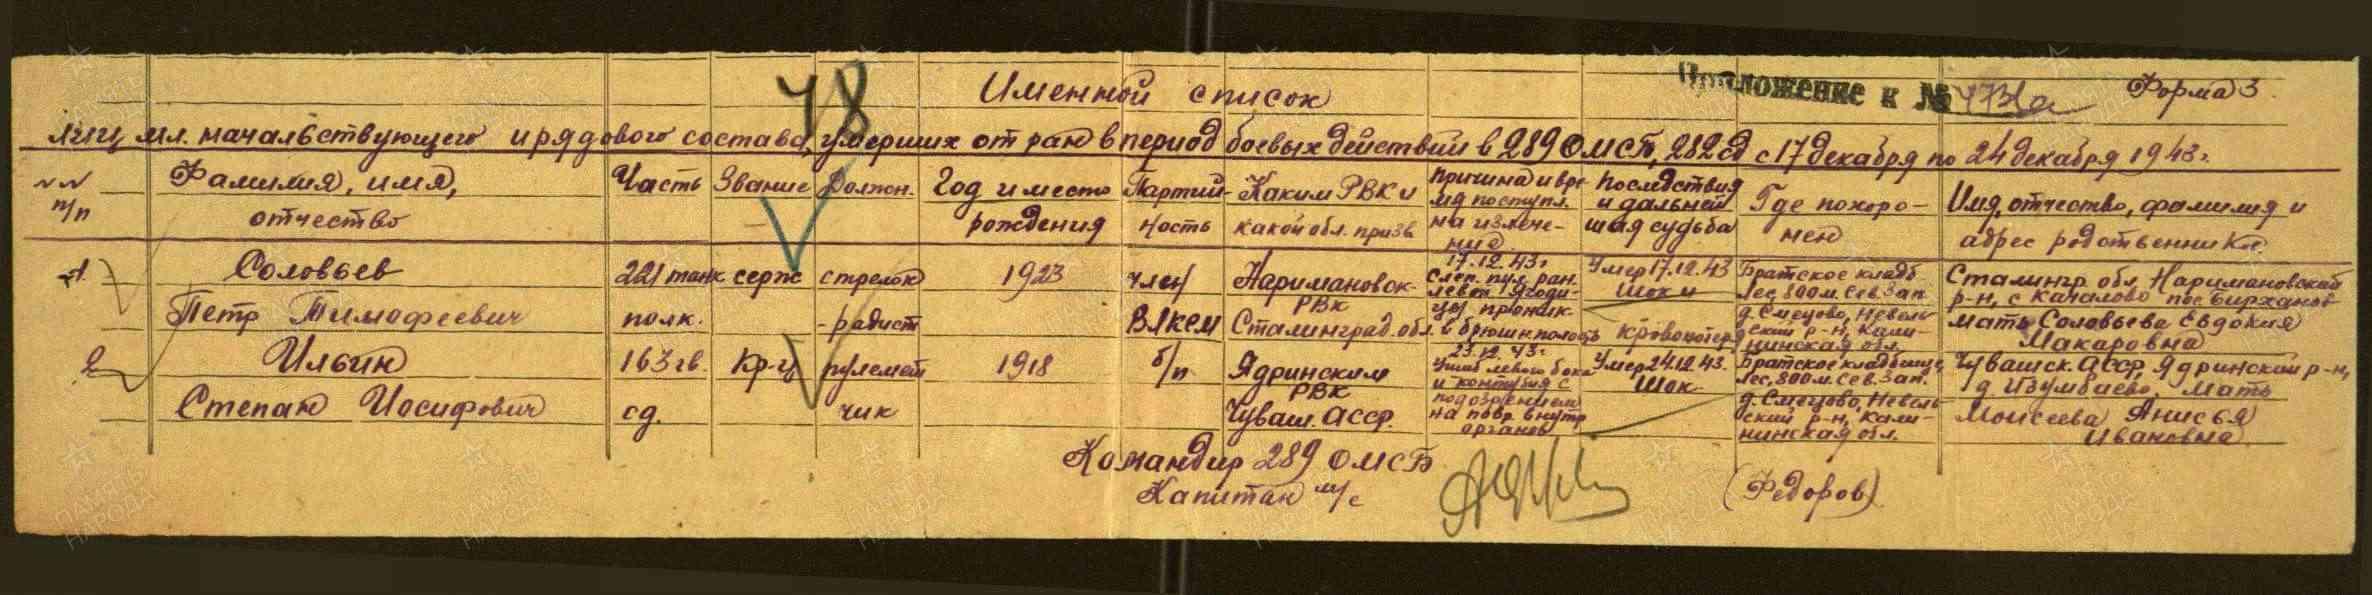 Именной список
Приложение к №
Форма 3.
78
лиц мл. начальствующего и рядового состава, умерших от ран в период боевых действий в 289 ОМСБ, 282 сд с 17 декабря по 24 декабря 1943 г.
№№ п/п
Фамилия, имя, отчество
Часть
Звание
Должн.
Год и место рождения
Партийность
Каким РВК и какой обл. призв.
Причина и время поступл. на излечение
Последствия и дальнейшая судьба
Где похоронен
Имя, отчество, фамилия и адрес родственников
1.
Соловьев
Петр Тимофеевич
221 танк
полк.
серж
стрелок
-радист
1923
член
ВЛКСМ
Наримановск.
РВК
Сталинград. обл.
17.12.43 г
Слеп. пул. ран.
левой ягоди-
цы проник.
в брюшн. полость
Умер 17.12.43
Шок и
кровопотер.
Братское кладб.
Лес, 800 м. Сев. Зап.
д. Сметово, Невель-
ский р-н, Кали-
нинская обл.
Сталингр. обл. Наримановский
р-н, с Качалово пос Бирханов
мать Соловьева Евдокия
Макаровна
2
Ильин
Степан Иосифович
163 гв.
сд.
Кр-ц
пулемет
чик
1918
б/п
Ядринским
РВК
Чуваш. АССР.
23.12.43 г
Ушиб левого бока
и контузия с
подозрением
на повр. внутр
органов
Умер 24.12.43.
Шок.
Братское кладбище,
Лес, 800 м. Сев. Зап.
д. Сметово, Невель-
ский р-н, Кали-
нинская обл.
Чувашск. АССР, Ядринский р-н,
д. Изумбаево, мать
Моисеева Анисья
Ивановна
Командир 289 ОМСБ
Капитан м/с
(Федоров)
ПАМЯТЬ
НАРОДА